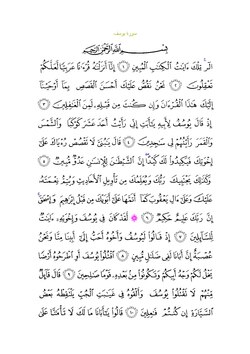 سورة يوسف
بِسْمِ اللَّهِ الرَّحْمَٰنِ الرَّحِيمِ
الٓر تِلْكَ ءَايَٰتُ الْكِتَٰبِ الْمُبِينِ ١ إِنَّآ أَنزَلْنَٰهُ قُرْءَٰنًا عَرَبِيًّا لَّعَلَّكُمْ
تَعْقِلُونَ ٢ نَحْنُ نَقُصُّ عَلَيْكَ أَحْسَنَ الْقَصَصِ بِمَآ أَوْحَيْنَآ
إِلَيْكَ هَٰذَا الْقُرْءَانَ وَإِن كُنتَ مِن قَبْلِهِۦ لَمِنَ الْغَٰفِلِينَ ٣
إِذْ قَالَ يُوسُفُ لِأَبِيهِ يَٰٓأَبَتِ إِنِّى رَأَيْتُ أَحَدَ عَشَرَ كَوْكَبًا وَالشَّمْسَ
وَالْقَمَرَ رَأَيْتُهُمْ لِى سَٰجِدِينَ ٤ قَالَ يَٰبُنَىَّ لَا تَقْصُصْ رُءْيَاكَ عَلَىٰٓ
إِخْوَتِكَ فَيَكِيدُوا۟ لَكَ كَيْدًا إِنَّ الشَّيْطَٰنَ لِلْإِنسَٰنِ عَدُوٌّ مُّبِينٌ ٥
وَكَذَٰلِكَ يَجْتَبِيكَ رَبُّكَ وَيُعَلِّمُكَ مِن تَأْوِيلِ الْأَحَادِيثِ وَيُتِمُّ نِعْمَتَهُۥ
عَلَيْكَ وَعَلَىٰٓ ءَالِ يَعْقُوبَ كَمَآ أَتَمَّهَا عَلَىٰٓ أَبَوَيْكَ مِن قَبْلُ إِبْرَٰهِيمَ وَإِسْحَٰقَ
إِنَّ رَبَّكَ عَلِيمٌ حَكِيمٌ ٦ لَّقَدْ كَانَ فِى يُوسُفَ وَإِخْوَتِهِۦٓ ءَايَٰتٌ
لِّلسَّآئِلِينَ ٧ إِذْ قَالُوا۟ لَيُوسُفُ وَأَخُوهُ أَحَبُّ إِلَىٰٓ أَبِينَا مِنَّا وَنَحْنُ
عُصْبَةٌ إِنَّ أَبَانَا لَفِى ضَلَٰلٍ مُّبِينٍ ٨ اقْتُلُوا۟ يُوسُفَ أَوِ اطْرَحُوهُ أَرْضًا
يَخْلُ لَكُمْ وَجْهُ أَبِيكُمْ وَتَكُونُوا۟ مِنۢ بَعْدِهِۦ قَوْمًا صَٰلِحِينَ ٩ قَالَ قَآئِلٌ
مِّنْهُمْ لَا تَقْتُلُوا۟ يُوسُفَ وَأَلْقُوهُ فِى غَيَٰبَتِ الْجُبِّ يَلْتَقِطْهُ بَعْضُ
السَّيَّارَةِ إِن كُنتُمْ فَٰعِلِينَ ١٠ قَالُوا۟ يَٰٓأَبَانَا مَا لَكَ لَا تَأْمَ۫نَّا عَلَىٰ